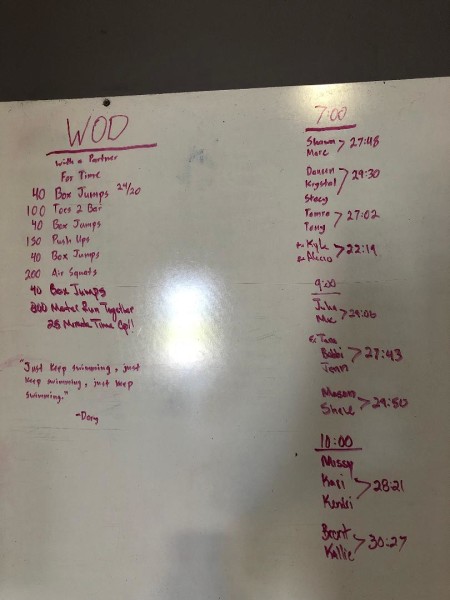 WOD
with a Partner
For Time
40 Box Jumps 24/20
100 Toes 2 Bar
40 Box Jumps
150 Push Ups
40 Box Jumps
200 Air Squats
40 Box Jumps
800 Meter Run Together
28 Minute Time Cap!!
"Just keep swimming, just
keep swimming, just keep
swimming."
-Dory
7:00
Shawn
Marc
> 27:48
Krystal
Stacy
> 29:30
Tony
> 27:02
Kyle
> 22:19
9:00
Tara
Bobbi
Jenn
> 27:43
Mason
> 29:50
10:00
Missy
Kari
> 28:21
Brent
Kallie
> 30:27